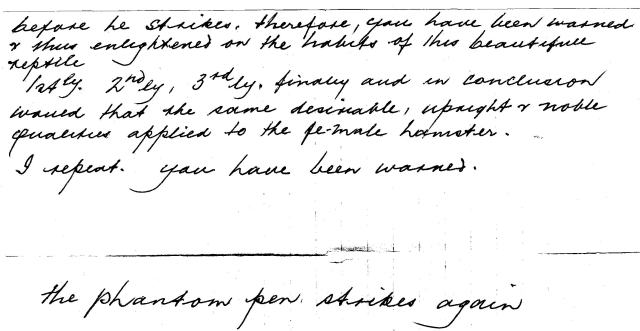 before he strikes. therefore, you have been warned
& thus enlightened on the habits of this beautifull
reptile
1stly. 2ndly, 3rdly. finally and in conclusion
would that the same desirable, upright & noble
qualities applied to the fe-male hamster.
I repeat. you have been warned.
the phantom pen strikes again